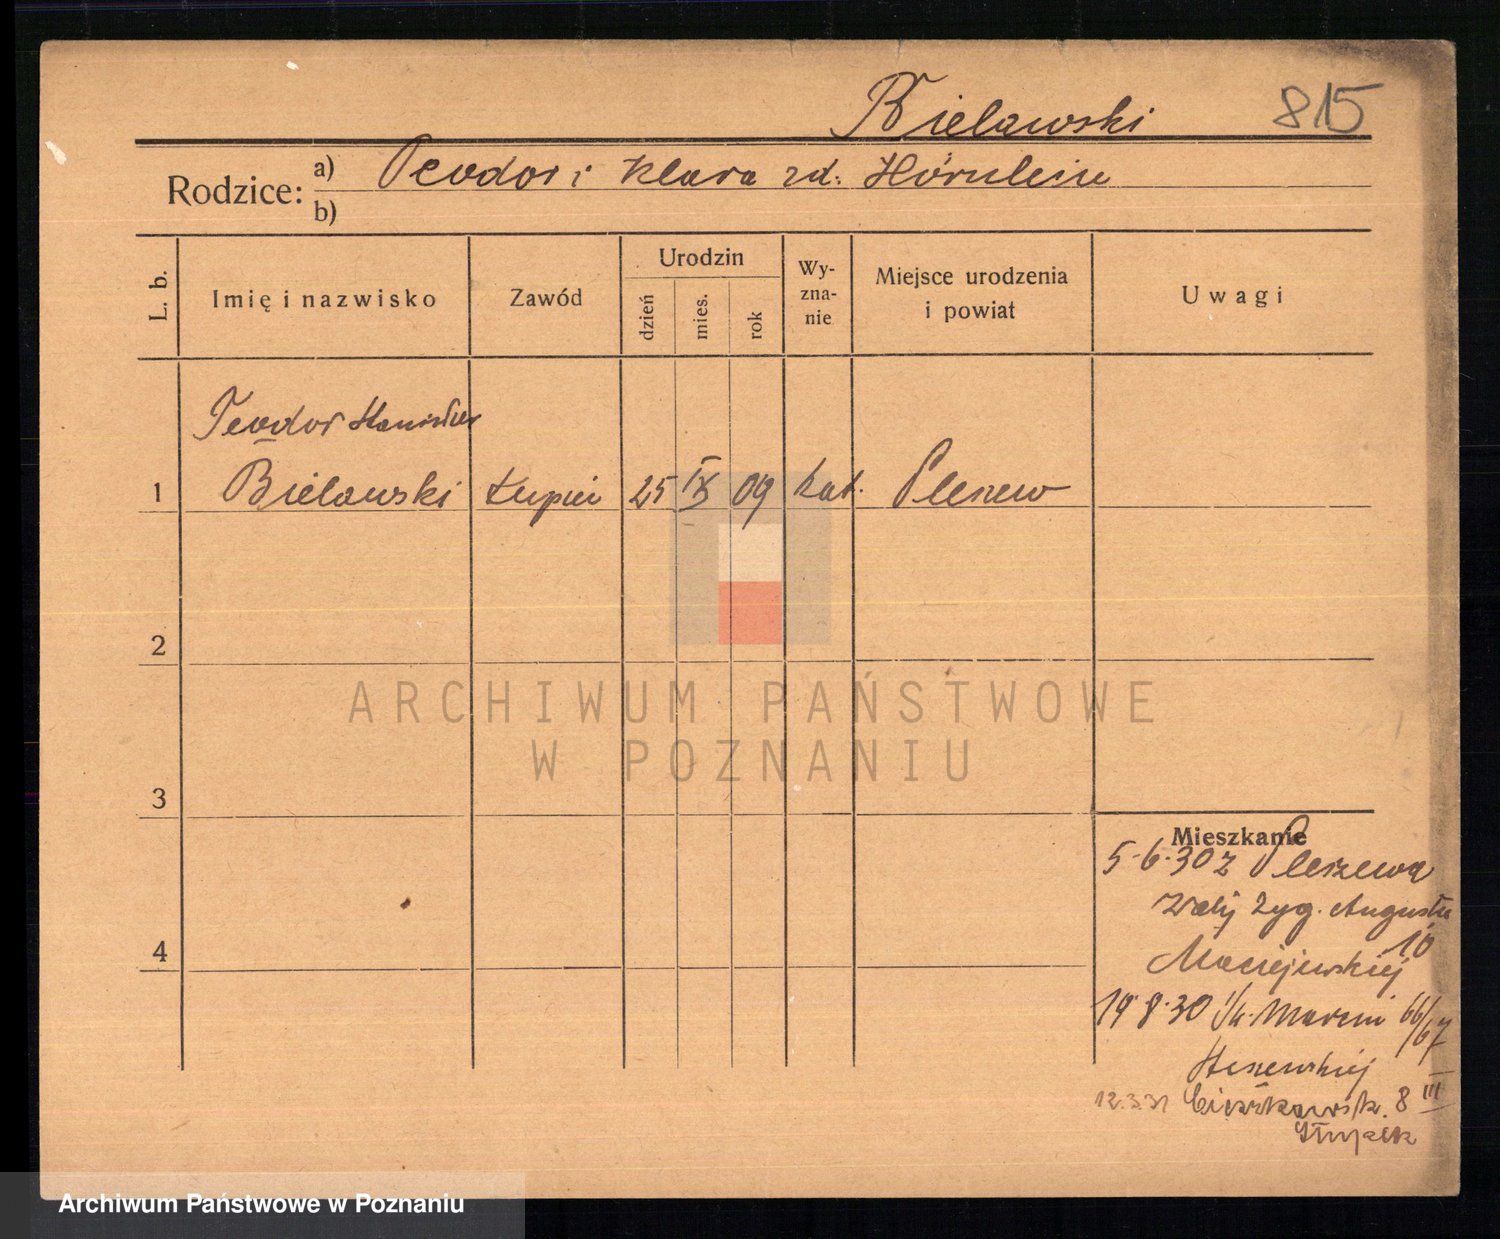 Bielawski 815
Rodzice: a) Teodor i Klara zd. Hörnlein
b)
L. b. Imię i nazwisko Zawód Urodzin dzień mies. rok Wy-zna-nie Miejsce urodzenia i powiat Uwagi
Teodor Stanisław
1 Bielawski kupiec 25 IX 09 kat. Pleszew
2
3
4
Mieszkanie
5.6.30 z Pleszewa
Zyg. Augusta 10
Maciejewskiej
19.8.30 Marcin 66/67
12.3.31 8 III
ARCHIWUM PAŃSTWOWE
W POZNANIU
Archiwum Państwowe w Poznaniu